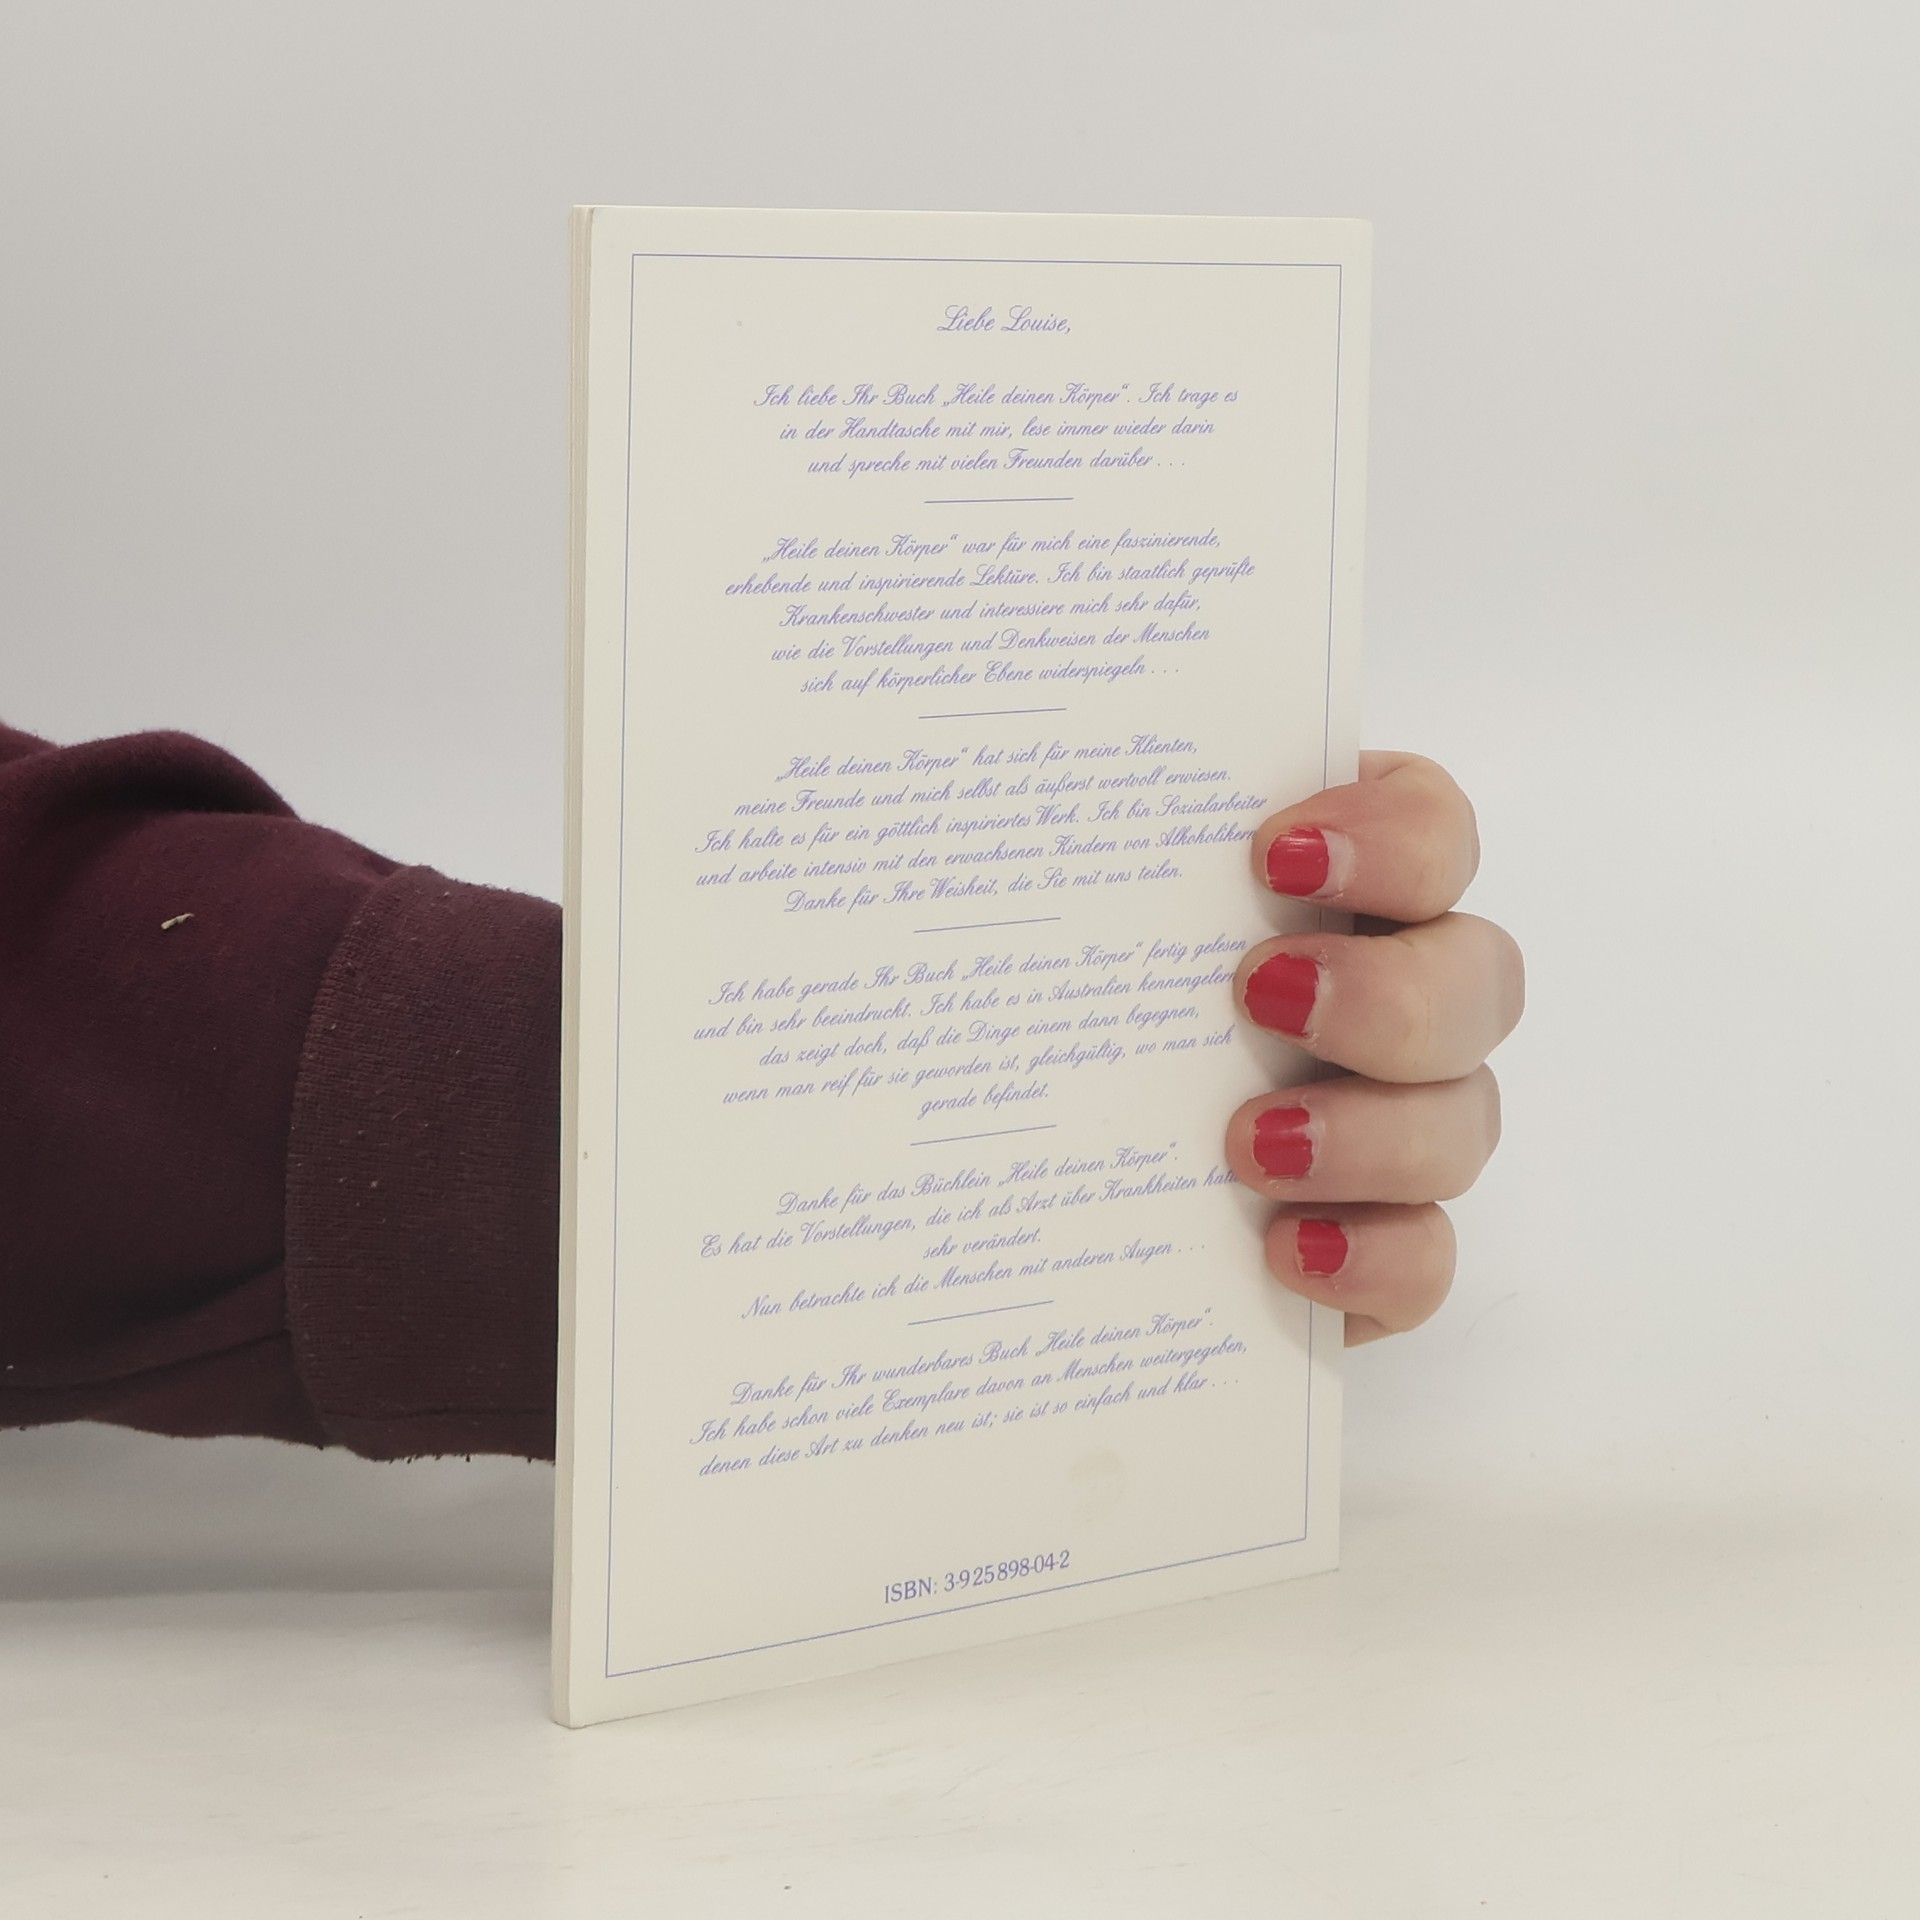 Liebe Louise,
Ich liebe Ihr Buch „Heile deinen Körper“. Ich trage es
in der Handtasche mit mir, lese immer wieder darin
und spreche mit vielen Freunden darüber . . .
„Heile deinen Körper“ war für mich eine faszinierende,
erhebende und inspirierende Lektüre. Ich bin staatlich geprüfte
Krankenschwester und interessiere mich sehr dafür,
wie die Vorstellungen und Denkweisen der Menschen
sich auf körperlicher Ebene widerspiegeln . . .
„Heile deinen Körper“ hat sich für meine Klienten,
meine Freunde und mich selbst als äußerst wertvoll erwiesen.
Ich halte es für ein göttlich inspiriertes Werk. Ich bin Sozialarbeiter
und arbeite intensiv mit den erwachsenen Kindern von Alkoholikern
Danke für Ihre Weisheit, die Sie mit uns teilen.
Ich habe gerade Ihr Buch „Heile deinen Körper“ fertig gelesen
und bin sehr beeindruckt. Ich habe es in Australien kennengelern
das zeigt doch, daß die Dinge einem dann begegnen,
wenn man reif für sie geworden ist, gleichgültig, wo man sich
gerade befindet.
Danke für das Büchlein „Heile deinen Körper“.
Es hat die Vorstellungen, die ich als Arzt über Krankheiten hatte
sehr verändert.
Nun betrachte ich die Menschen mit anderen Augen . . .
Danke für Ihr wunderbares Buch „Heile deinen Körper“.
Ich habe schon viele Exemplare davon an Menschen weitergegeben,
denen diese Art zu denken neu ist; sie ist so einfach und klar . . .
ISBN: 3-925898-04-2